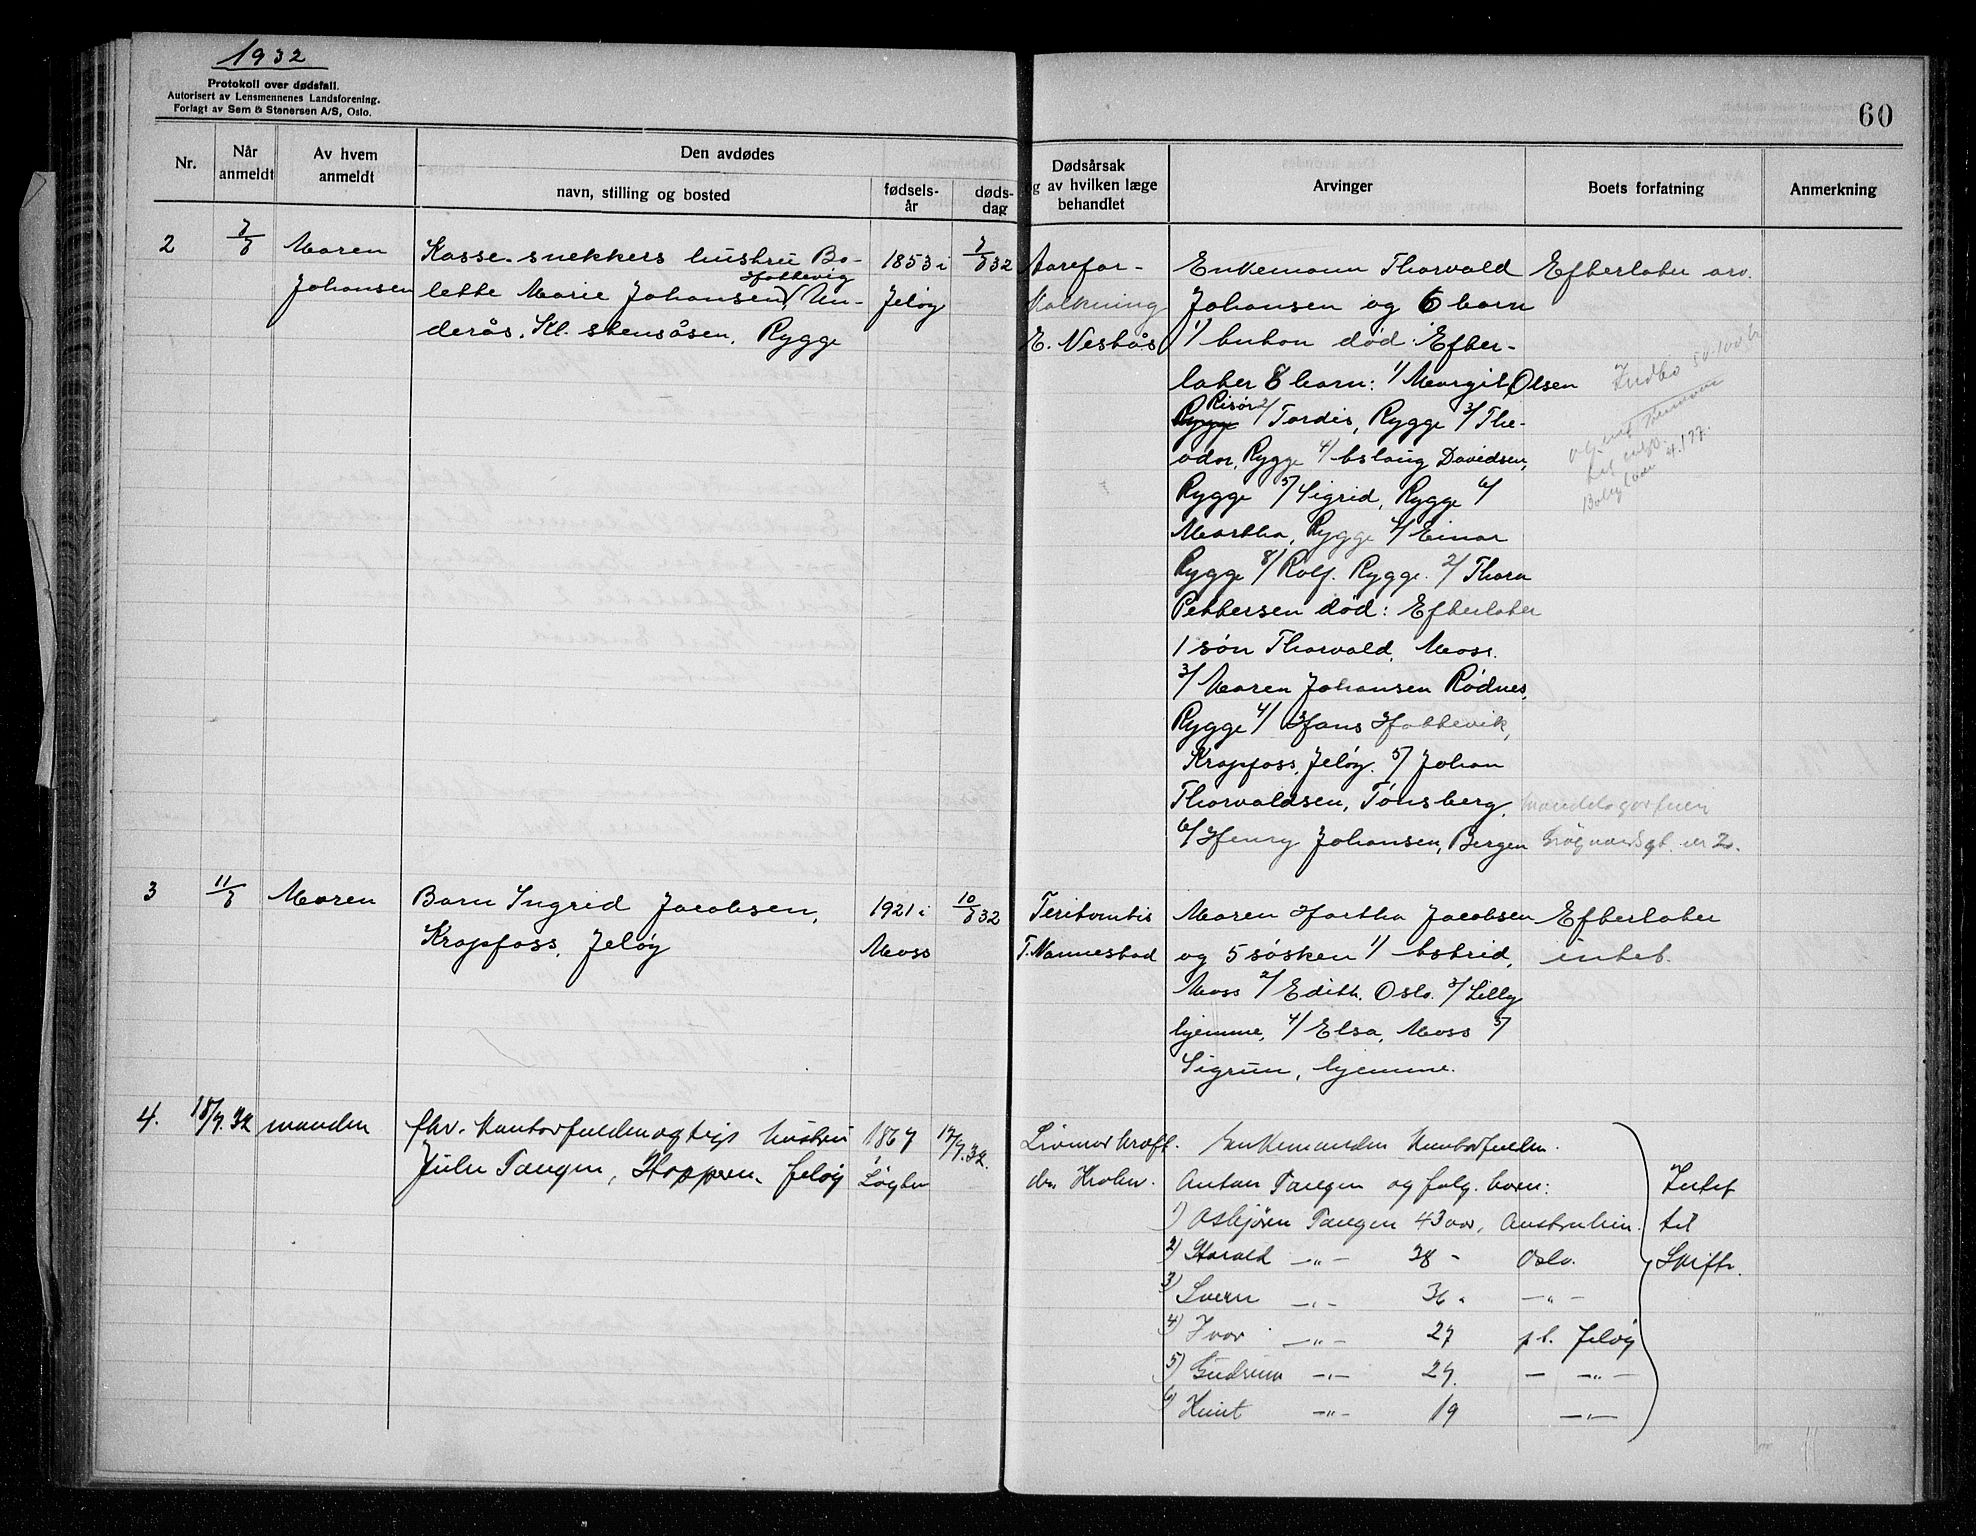 1932
Protokoll over dødsfall.
Autorisert av Lensmennenes Landsforening.
Forlagt av Sem & Stenersen A/S, Oslo.
60
Nr.
Når anmeldt
Av hvem anmeldt
Den avdødes
navn, stilling og bosted
fødsels-år
døds-dag
Dødsårsak
og av hvilken læge
behandlet
Arvinger
Boets forfatning
Anmerkning
2
Maren
Johansen
Kasse-snekkers hustru Bo-
Hattevig
lette Marie Johansen Un-
derås. Kl. stensåsen, Rygge
1853 i
Jeløy
32
Aarefor-
kalkning
E. Nesbås
Enkemann Thorvald
Johansen og 6 barn
1/ buton død: Efter-
later 8 barn: 1/ Margit Olsen
Risør 2/ Tordis, Rygge 3/ The-
odor, Rygge 4/ Aslaug Davidsen,
Rygge 5/ Sigrid, Rygge 6/
Martha, Rygge 7/ Einar
Rygge 8/ Rolf. Rygge. 2/ Thora
Pettersen død: Efterlater
1 søn Thorvald, Moss.
3/ Maren Johansen Rødnes,
Rygge 4/ Hans Hattevik,
Krapfoss, Jeløy. 5/ Johan
Thorvaldsen, Tønsberg,
6/ Henry Johansen, Bergen
Efterlater arv.
3
Moren
Barn Ingrid Jacobsen,
Krapfoss, Jeløy
1921 i
Moss
32
T. Nannestad
Moren Hartha Jacobsen
og 5 søsken 1/ Astrid,
Moss 2/ Edith. Oslo. 3/ Lilly
hjemme, 4/ Elsa, Moss 5/
Sigrun, hjemme.
Efterlater
intet.
4.
18/7.32
manden
fhv. kontorfuldmægtigs hustru
Julie Tangen, Hoppern, Jeløy
1867
i
Løyten
17/7.32.
dr. Krohn.
Enkemanden kontorfuldm.
Anton Tangen og følg. barn:
1) Asbjørn Tangen 43 aar, Australien.
2) Harald —„— 38 „ Oslo.
3) Sverre —„— 36 „ —„—
4) Ivar —„— 27 pt. Jeløy
5) Gudrun —„— 27. — —„—
6) Knut —„— 19 —„—
Intet
til
Skifte.